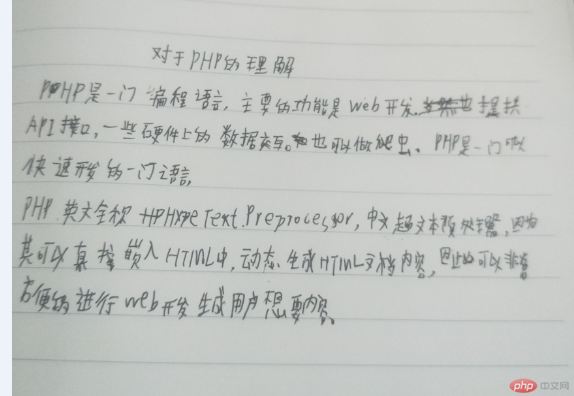 对于PHP的理解
PHP是一门编程语言,主要的功能是web开发,提供
API接口,一些硬件上的数据交互。也可以做爬虫、PHP是一门
快速开发的一门语言,
PHP 英文全称 HPHypeText.Preprocessor,中文超文本预处理器,因为
其可以直接嵌入HTML中,动态生成HTML文档内容,因此可以非常
方便的进行web开发生成用户想要内容。
php 中文网